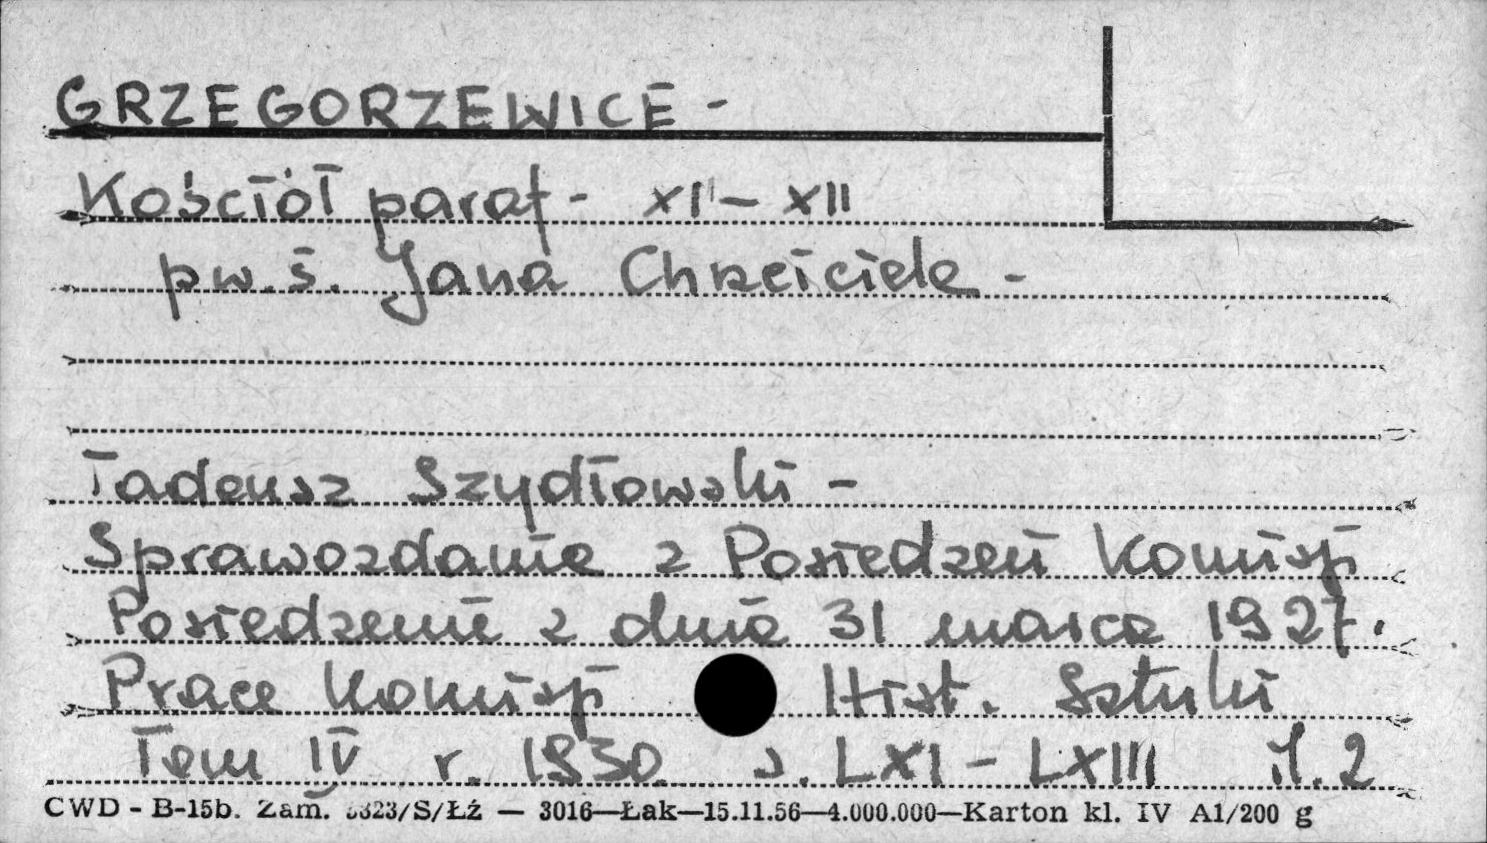 GRZEGORZEWICE -
Kościół paraf - XI - XII
pw. ś. Jana Chrzciciela -
Tadeusz Szydłowski -
Sprawozdanie z Posiedzeń Komisji
Posiedzenie z dnia 31 marca 1927.
Prace Komisji Hist. Sztuki
Tom IV r. 1930 s. LXI - LXIII il. 2
CWD - B-15b. Zam. 323/S/Łź — 3016—Łak—15.11.56—4.000.000—Karton kl. IV A1/200 g